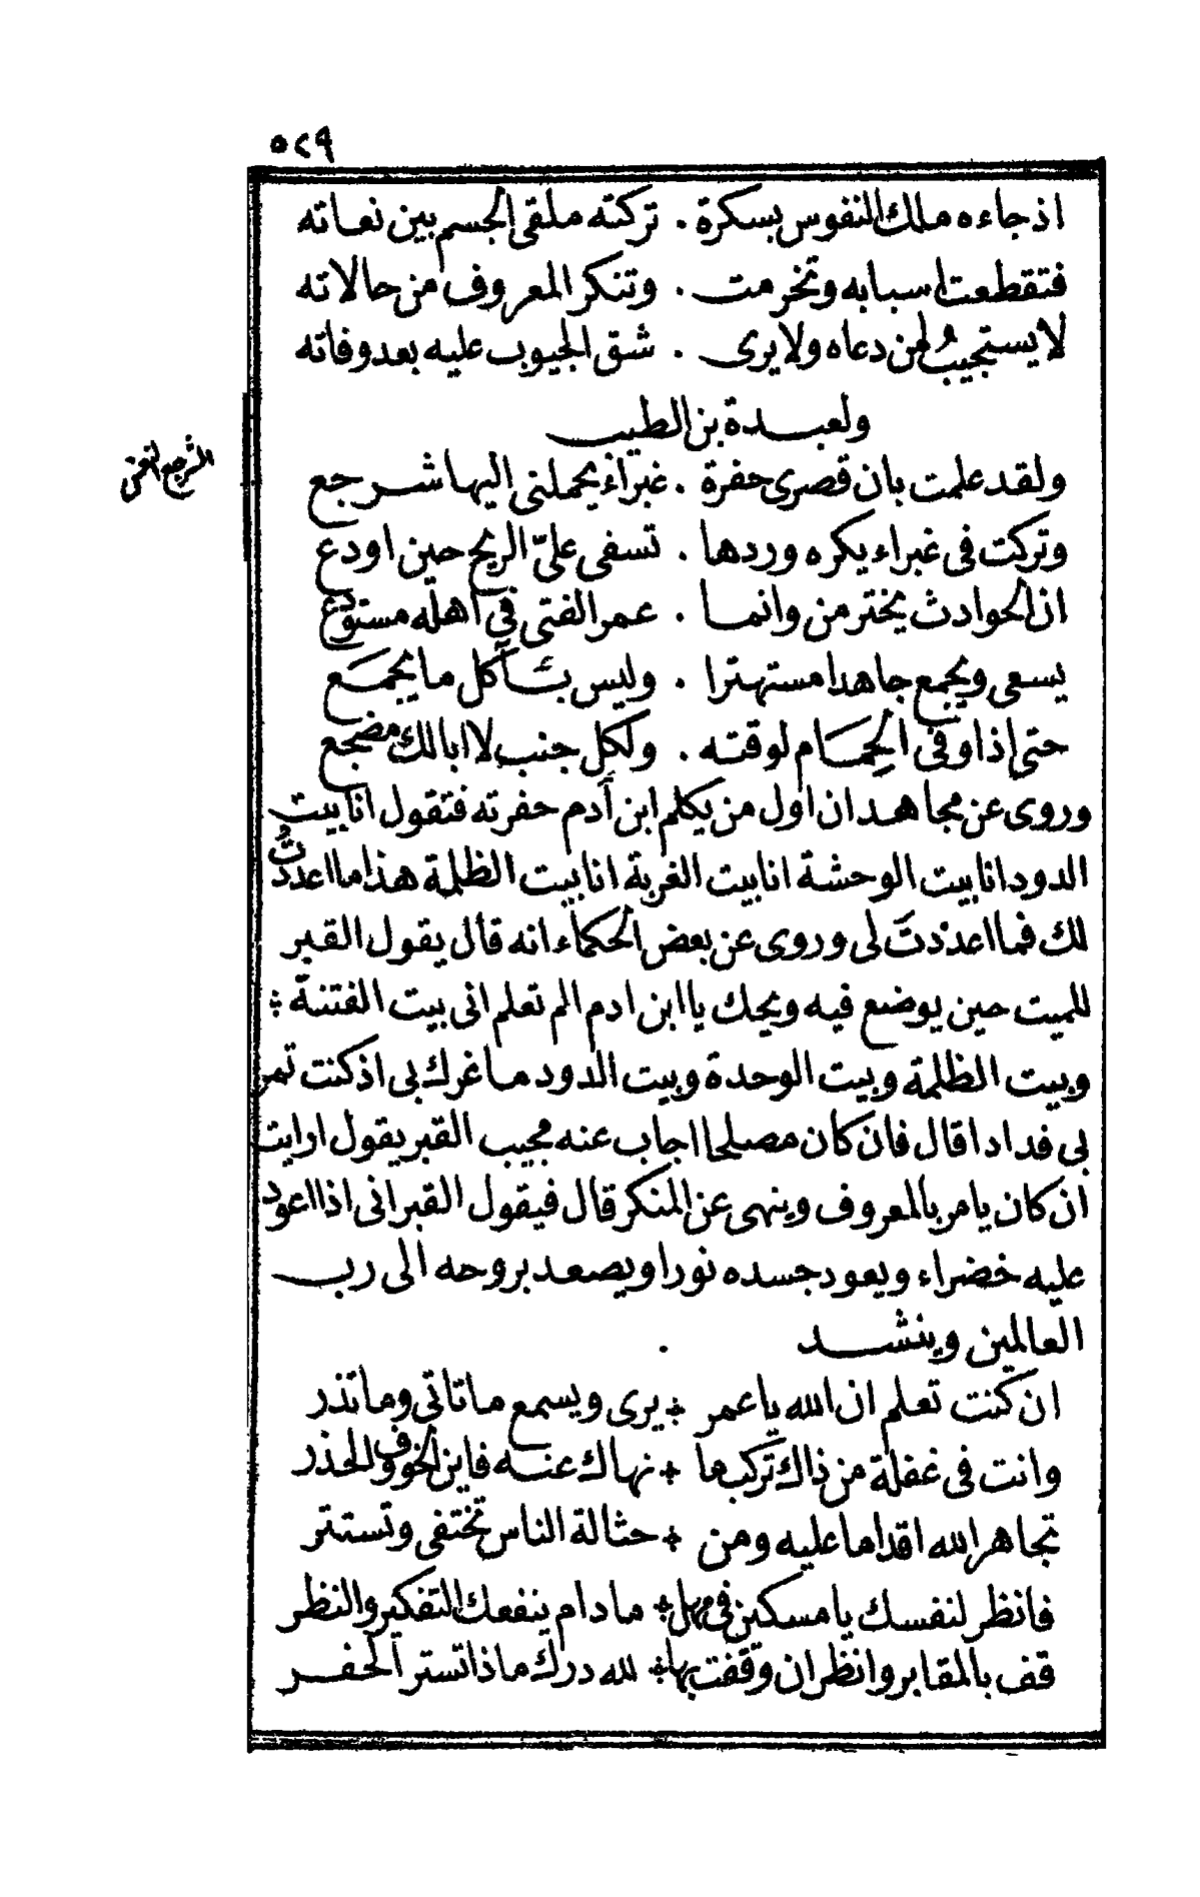 ٥٢٩
اذ جاءه ملك النفوس بسكرة . تركته ملقى الجسم بين نعاته
فتقطعت اسبابه وتخرمت . وتنكر المعروف من حالاته
لا يستجيبُ لمن دعاه ولا يرى . شق الجيوب عليه بعد وفاته
ولعبدة بن الطيب
ولقد علمت بان قصرى حفرة . غبراء يحملنى اليها شرجع
الشرجع النعش
وتركت فى غبراء يكره وردها . تسفى علىّ الريح حين اودع
ان الحوادث يخترمن وانما . عمر الفتى في اهله مستودع
يسعى ويجمع جاهدا مستهترا . وليس بئآكل ما يجمَع
حتى اذا وفى الحِمَام لوقته . ولكل جنب لا ابا لك مضجع
وروى عن مجاهد ان اول من يكلم ابن آدم حفرته فتقول انا بيت
الدود انا بيت الوحشة انا بيت الغربة انا بيت الظلمة هذا ما اعددتُ
لك فما اعددْتَ لى وروى عن بعض الحكماء انه قال يقول القبر
للميت حين يوضع فيه ويحك يا ابن ادم الم تعلم انى بيت الفتنة ؛
وبيت الظلمة وبيت الوحدة وبيت الدود ما غرك بى اذ كنت تمر
بى فدادا قال فان كان مصلحا اجاب عنه مجيب القبر يقول ارايت
ان كان يامر بالمعروف وينهى عن المنكر قال فيقول القبر انى اذا اعود
عليه خضراء ويعود جسده نورا ويصعد بروحه الى رب
العالمين وينشد .
ان كنت تعلم ان الله يا عمر ؛ يرى ويسمع ما تاتى وما تذر
وانت فى غفلة من ذاك تركبها ؛ نهاك عنه فاين الخوف والحذر
تجاهر الله اقداما عليه ومن ؛ حثالة الناس تختفى وتستتر
فانظر لنفسك يا مسكين فى مهل ؛ ما دام ينفعك التفكير والنظر
قف بالمقابر وانظر ان وقفت بها ؛ لله درك ماذا تستر الحفر